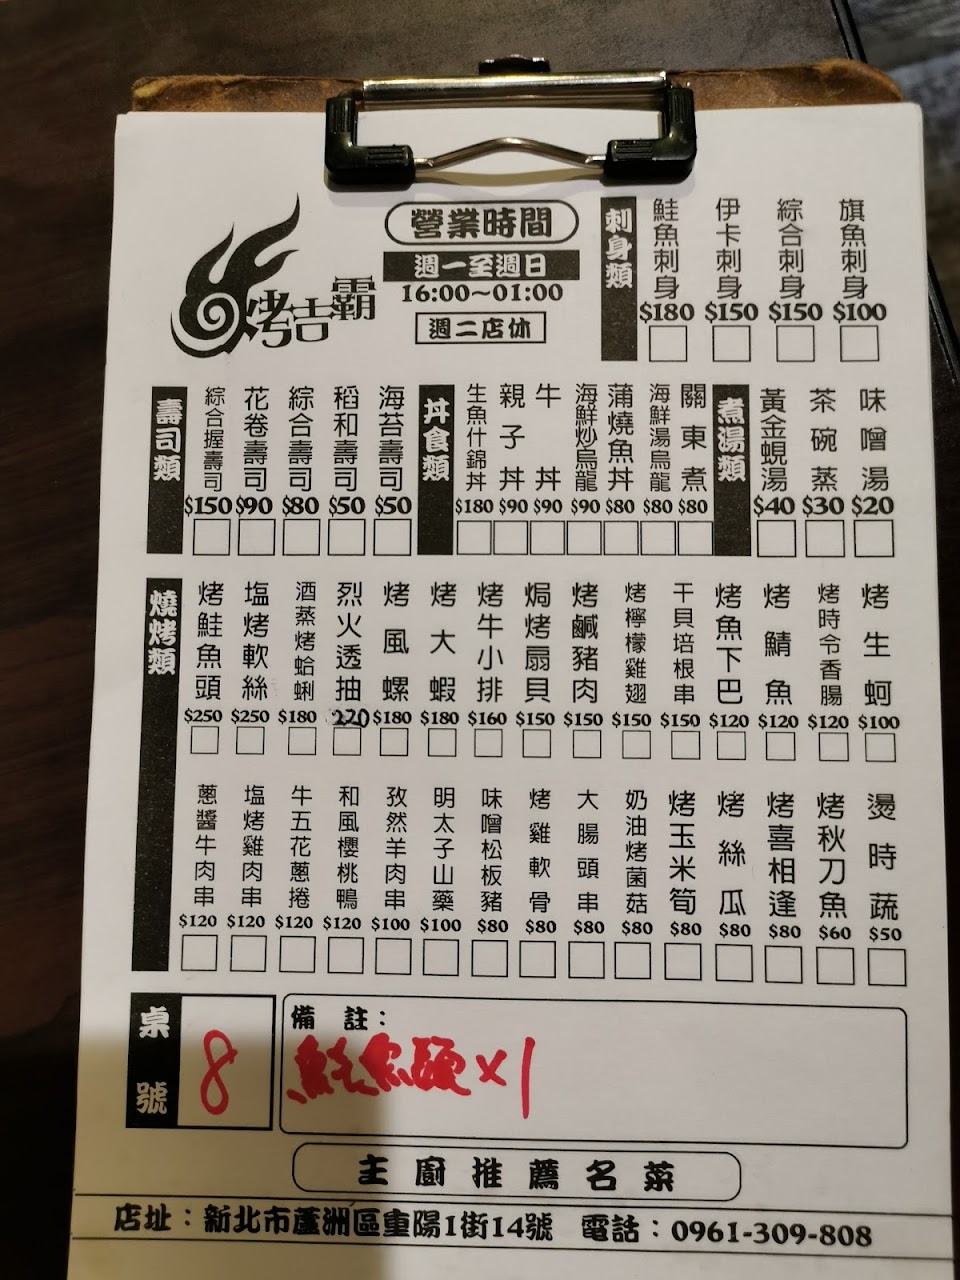 烤吉霸
營業時間
週一至週日
16:00~01:00
週二店休
刺身類
鮭魚刺身 $180
伊卡刺身 $150
綜合刺身 $150
旗魚刺身 $100
壽司類
綜合握壽司 $150
花卷壽司 $90
綜合壽司 $80
稻和壽司 $50
海苔壽司 $50
丼食類
生魚什錦丼 $180
親子丼 $90
牛丼 $90
海鮮炒烏龍 $90
蒲燒魚丼 $80
海鮮湯烏龍 $80
關東煮 $80
煮湯類
黃金蜆湯 $40
茶碗蒸 $30
味噌湯 $20
燒烤類
烤鮭魚頭 $250
塩烤軟絲 $250
酒蒸烤蛤蜊 $180
烈火透抽 220
烤風螺 $180
烤大蝦 $180
烤牛小排 $160
焗烤扇貝 $150
烤鹹豬肉 $150
烤檸檬雞翅 $150
干貝培根串 $150
烤魚下巴 $120
烤鯖魚 $120
烤時令香腸 $120
烤生蚵 $100
蔥醬牛肉串 $120
塩烤雞肉串 $120
牛五花蔥捲 $120
和風櫻桃鴨 $120
孜然羊肉串 $100
明太子山藥 $100
味噌松板豬 $80
烤雞軟骨 $80
大腸頭串 $80
奶油烤菌菇 $80
烤玉米筍 $80
烤絲瓜 $80
烤喜相逢 $80
烤秋刀魚 $60
燙時蔬 $50
桌號 8
備 註：
鮭魚頭 x1
主廚推薦名菜
店址：新北市蘆洲區重陽1街14號 電話：0961-309-808